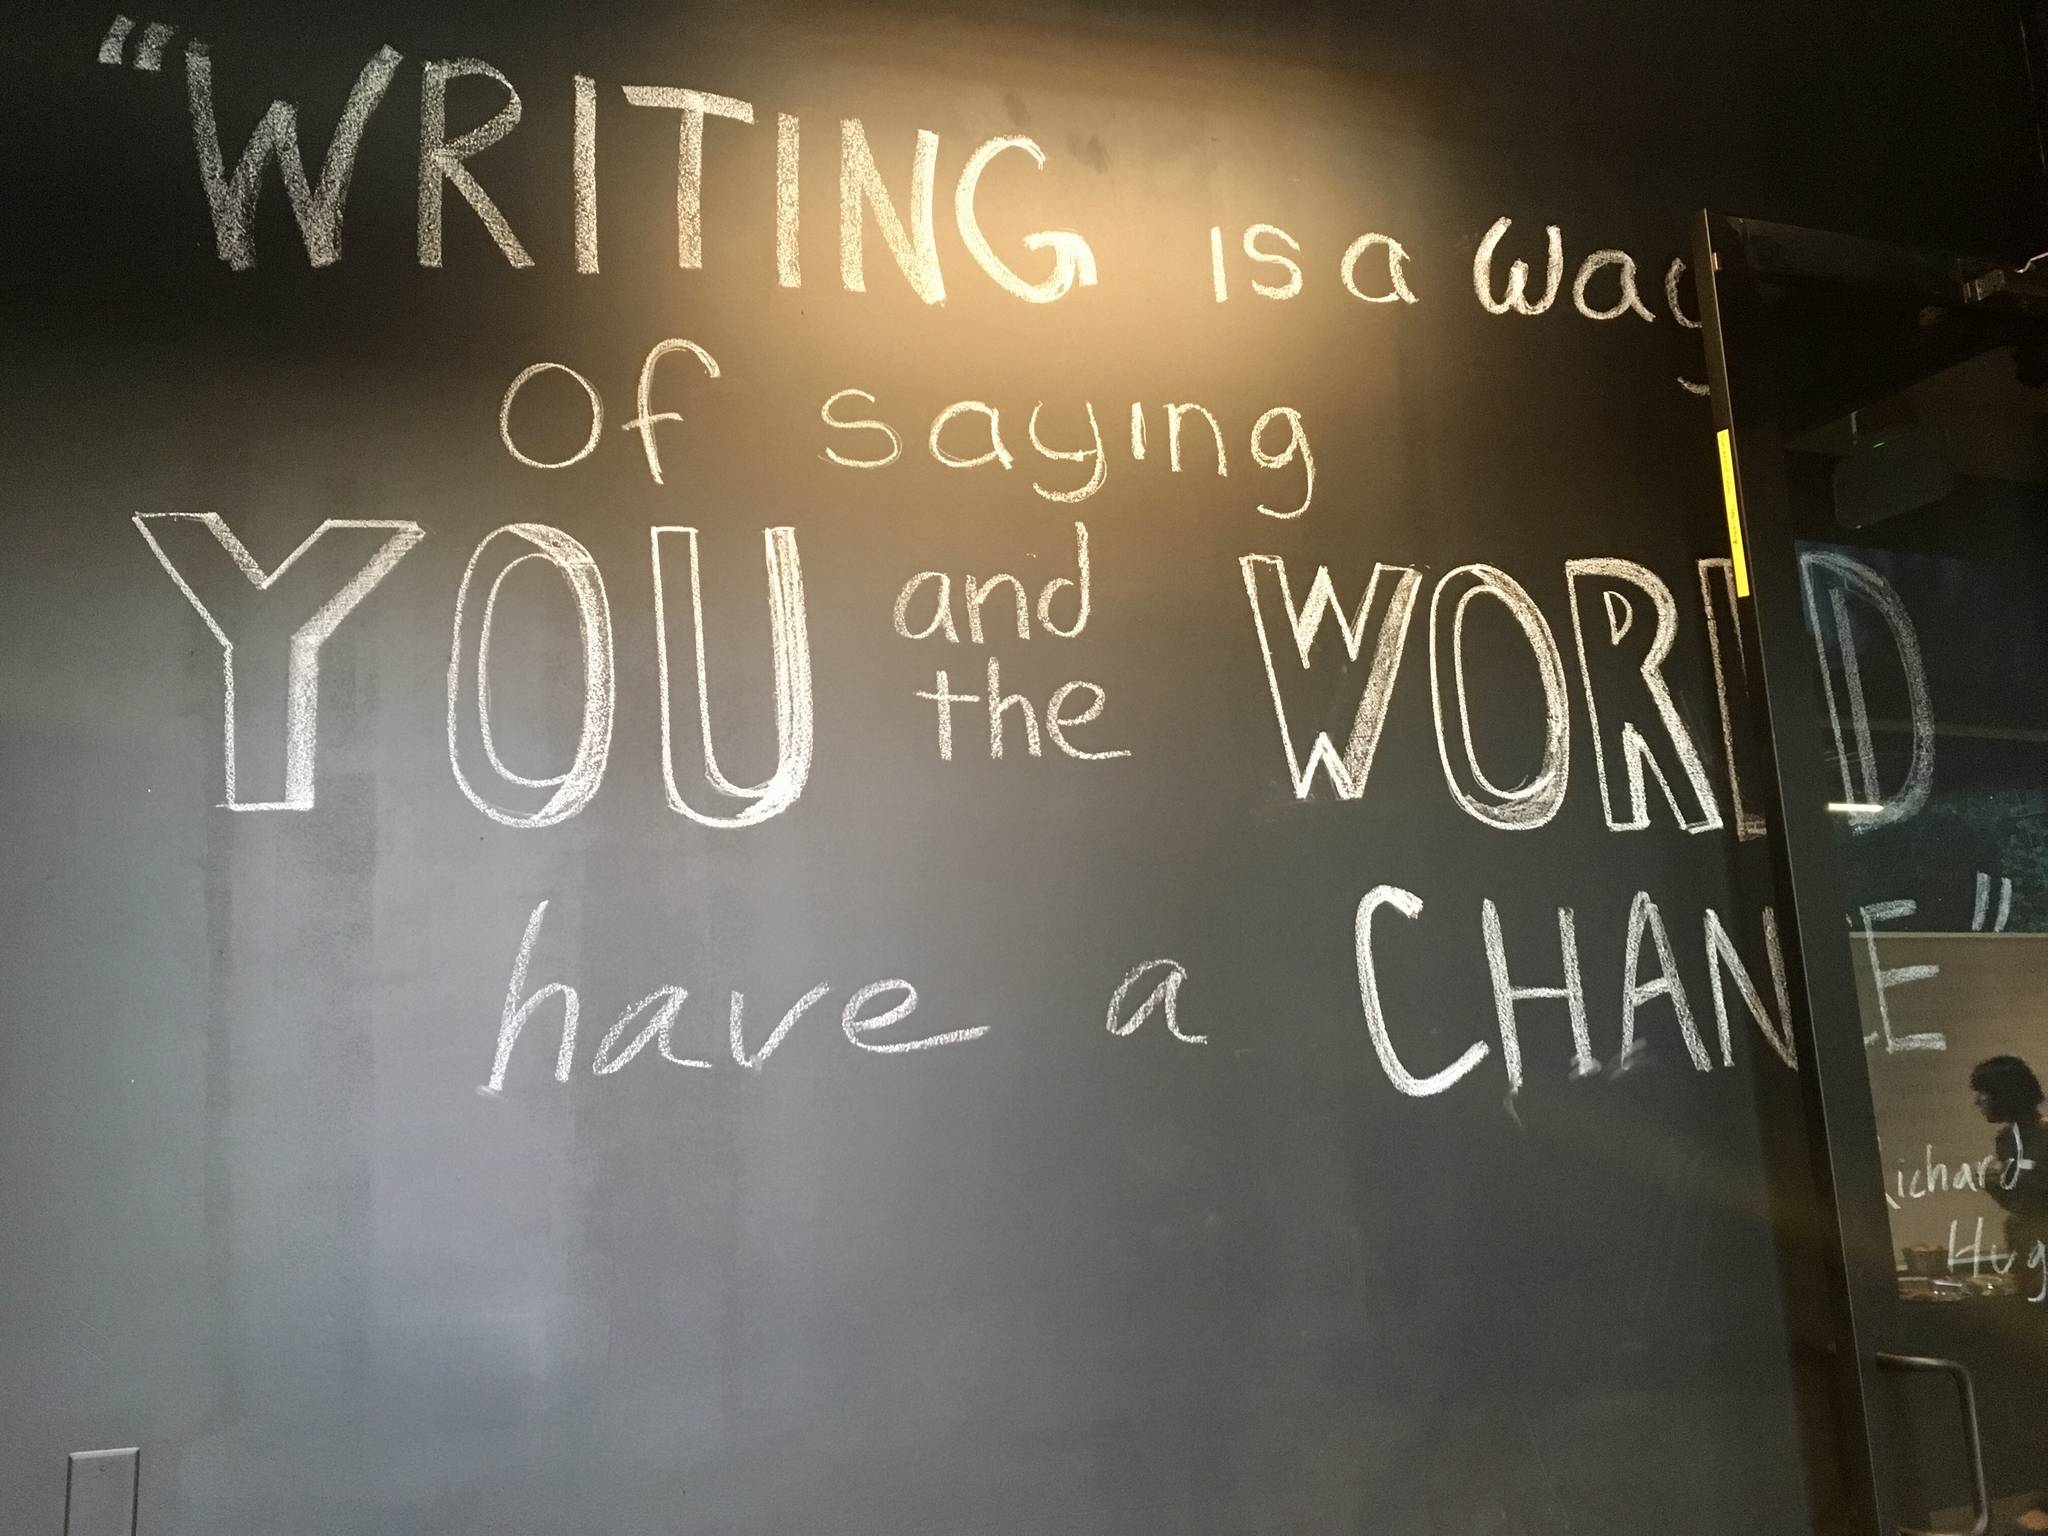 "WRITING is a way
of saying
YOU and
the WORLD
have a CHANCE"
Richard
Hug